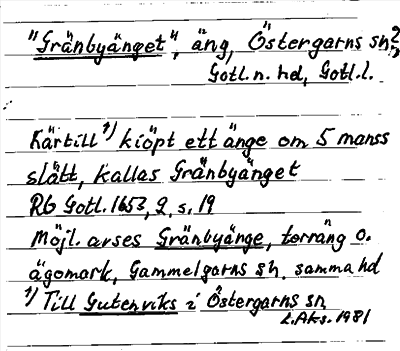 "Gränbyänget", äng, Östergarns sn?
Gotl. n. hd, Gotl. l.
Härtill 1) kiöpt ett änge om 5 manss
slätt, kallas Gränbyänget
RG Gotl. 1653, 2, s. 19
Möjl. avses Gränbyänge, terräng o.
ägomark, Gammelgarns sn, samma hd
1) Till Gutenviks i Östergarns sn
L. Aks. 1981